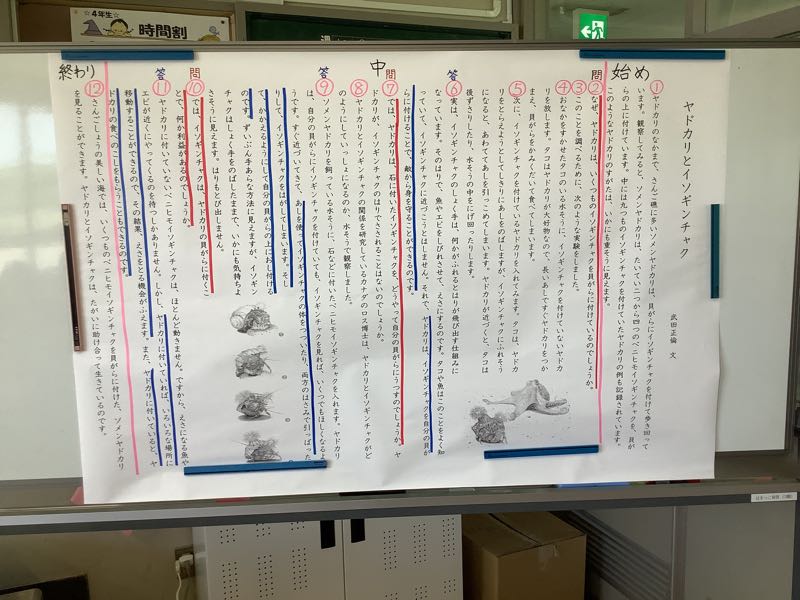 ☆4年生☆
時間割
始め
中
終わり
ヤドカリとイソギンチャク
武田正倫 文
①ヤドカリのなかまで、さんご礁に多いソメンヤドカリは、貝がらにイソギンチャクを付けて歩き回って
います。観察してみると、ソメンヤドカリは、たいてい二つから四つのベニヒモイソギンチャクを、貝が
らの上に付けています。中には九つものイソギンチャクを付けていたヤドカリの例も記録されています。
このようなヤドカリのすがたは、いかにも重そうに見えます。
問
②なぜ、ヤドカリは、いくつものイソギンチャクを貝がらに付けているのでしょうか。
③このことを調べるために、次のような実験をしました。
④おなかをすかせたタコのいる水そうに、イソギンチャクを付けていないヤドカ
リを放します。タコはヤドカリが大好物なので、長いあしですぐヤドカリをつか
まえ、貝がらをかみくだいて食べてしまいます。
⑤次に、イソギンチャクを付けているヤドカリを入れてみます。タコは、ヤドカ
リをとらえようとしてしきりにあしをのばしますが、イソギンチャクにふれそう
になると、あわててあしを引っこめてしまいます。ヤドカリが近づくと、タコは
後ずさりしたり、水そうの中をにげ回ったりします。
答
⑥実は、イソギンチャクのしょく手は、何かがふれるとはりが飛び出す仕組みに
なっています。そのはりで、魚やエビをしびれさせて、えさにするのです。タコや魚はこのことをよく知
っていて、イソギンチャクに近づこうとはしません。それで、ヤドカリは、イソギンチャクを自分の貝が
らに付けることで、敵から身を守ることができるのです。
問
⑦では、ヤドカリは、石に付いたイソギンチャクを、どうやって自分の貝がらにうつすのでしょうか。ヤ
ドカリが、イソギンチャクのはりでさされることはないのでしょうか。
⑧ヤドカリとイソギンチャクの関係を研究しているカナダのロス博士は、ヤドカリとイソギンチャクがど
のようにしていっしょになるのか、水そうで観察しました。
答
⑨ソメンヤドカリを飼っている水そうに、石などに付いたベニヒモイソギンチャクを入れます。ヤドカリ
は、自分の貝がらにイソギンチャクを付けていても、イソギンチャクを見れば、いくつでもほしくなるよ
うです。すぐ近づいてきて、あしを使ってイソギンチャクの体をつついたり、両方のはさみで引っぱった
りして、イソギンチャクをはがしてしまいます。そ
して、かかえるようにして自分の貝がらの上におし付ける
のです。ずいぶん手あらな方法に見えますが、イソギン
チャクはしょく手をのばしたままで、いかにも気持ちよ
さそうに見えます。はりもとび出しません。
問
⑩では、イソギンチャクは、ヤドカリの貝がらに付くこ
とで、何か利益があるのでしょうか。
答
⑪ヤドカリに付いていないベニヒモイソギンチャクは、ほとんど動きません。ですから、えさになる魚や
エビが近くにやってくるのを待つしかありません。しかし、ヤドカリに付いていれば、いろいろな場所に
移動することができるので、その結果、えさをとる機会がふえます。また、ヤドカリに付いていると、ヤ
ドカリの食べのこしをもらうこともできるのです。
⑫さんごしょうの美しい海では、いくつものベニヒモイソギンチャクを貝がらに付けた、ソメンヤドカリ
を見ることができます。ヤドカリとイソギンチャクは、たがいに助け合って生きているのです。